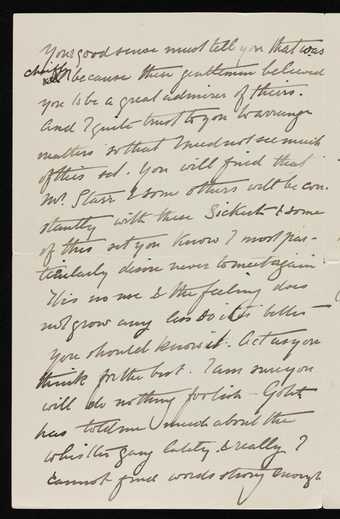 Your good sense must tell you that was
chiefly because these gentlemen believed
you to be a great admirer of theirs.
And I quite trust to you to arrange
matters so that I need not see much
of this set. You will find that
Mr. Starr & some others will be con-
stantly with these Sickerts & some
of this set you know I most par-
ticularly desire never to meet again
It is no use & the feeling does
not grow any less so it is better
you should know it. Act as you
think for the best. I am sure you
will do nothing foolish - 
has told me much about the
Whistler gang lately & really I
cannot find words strong enough